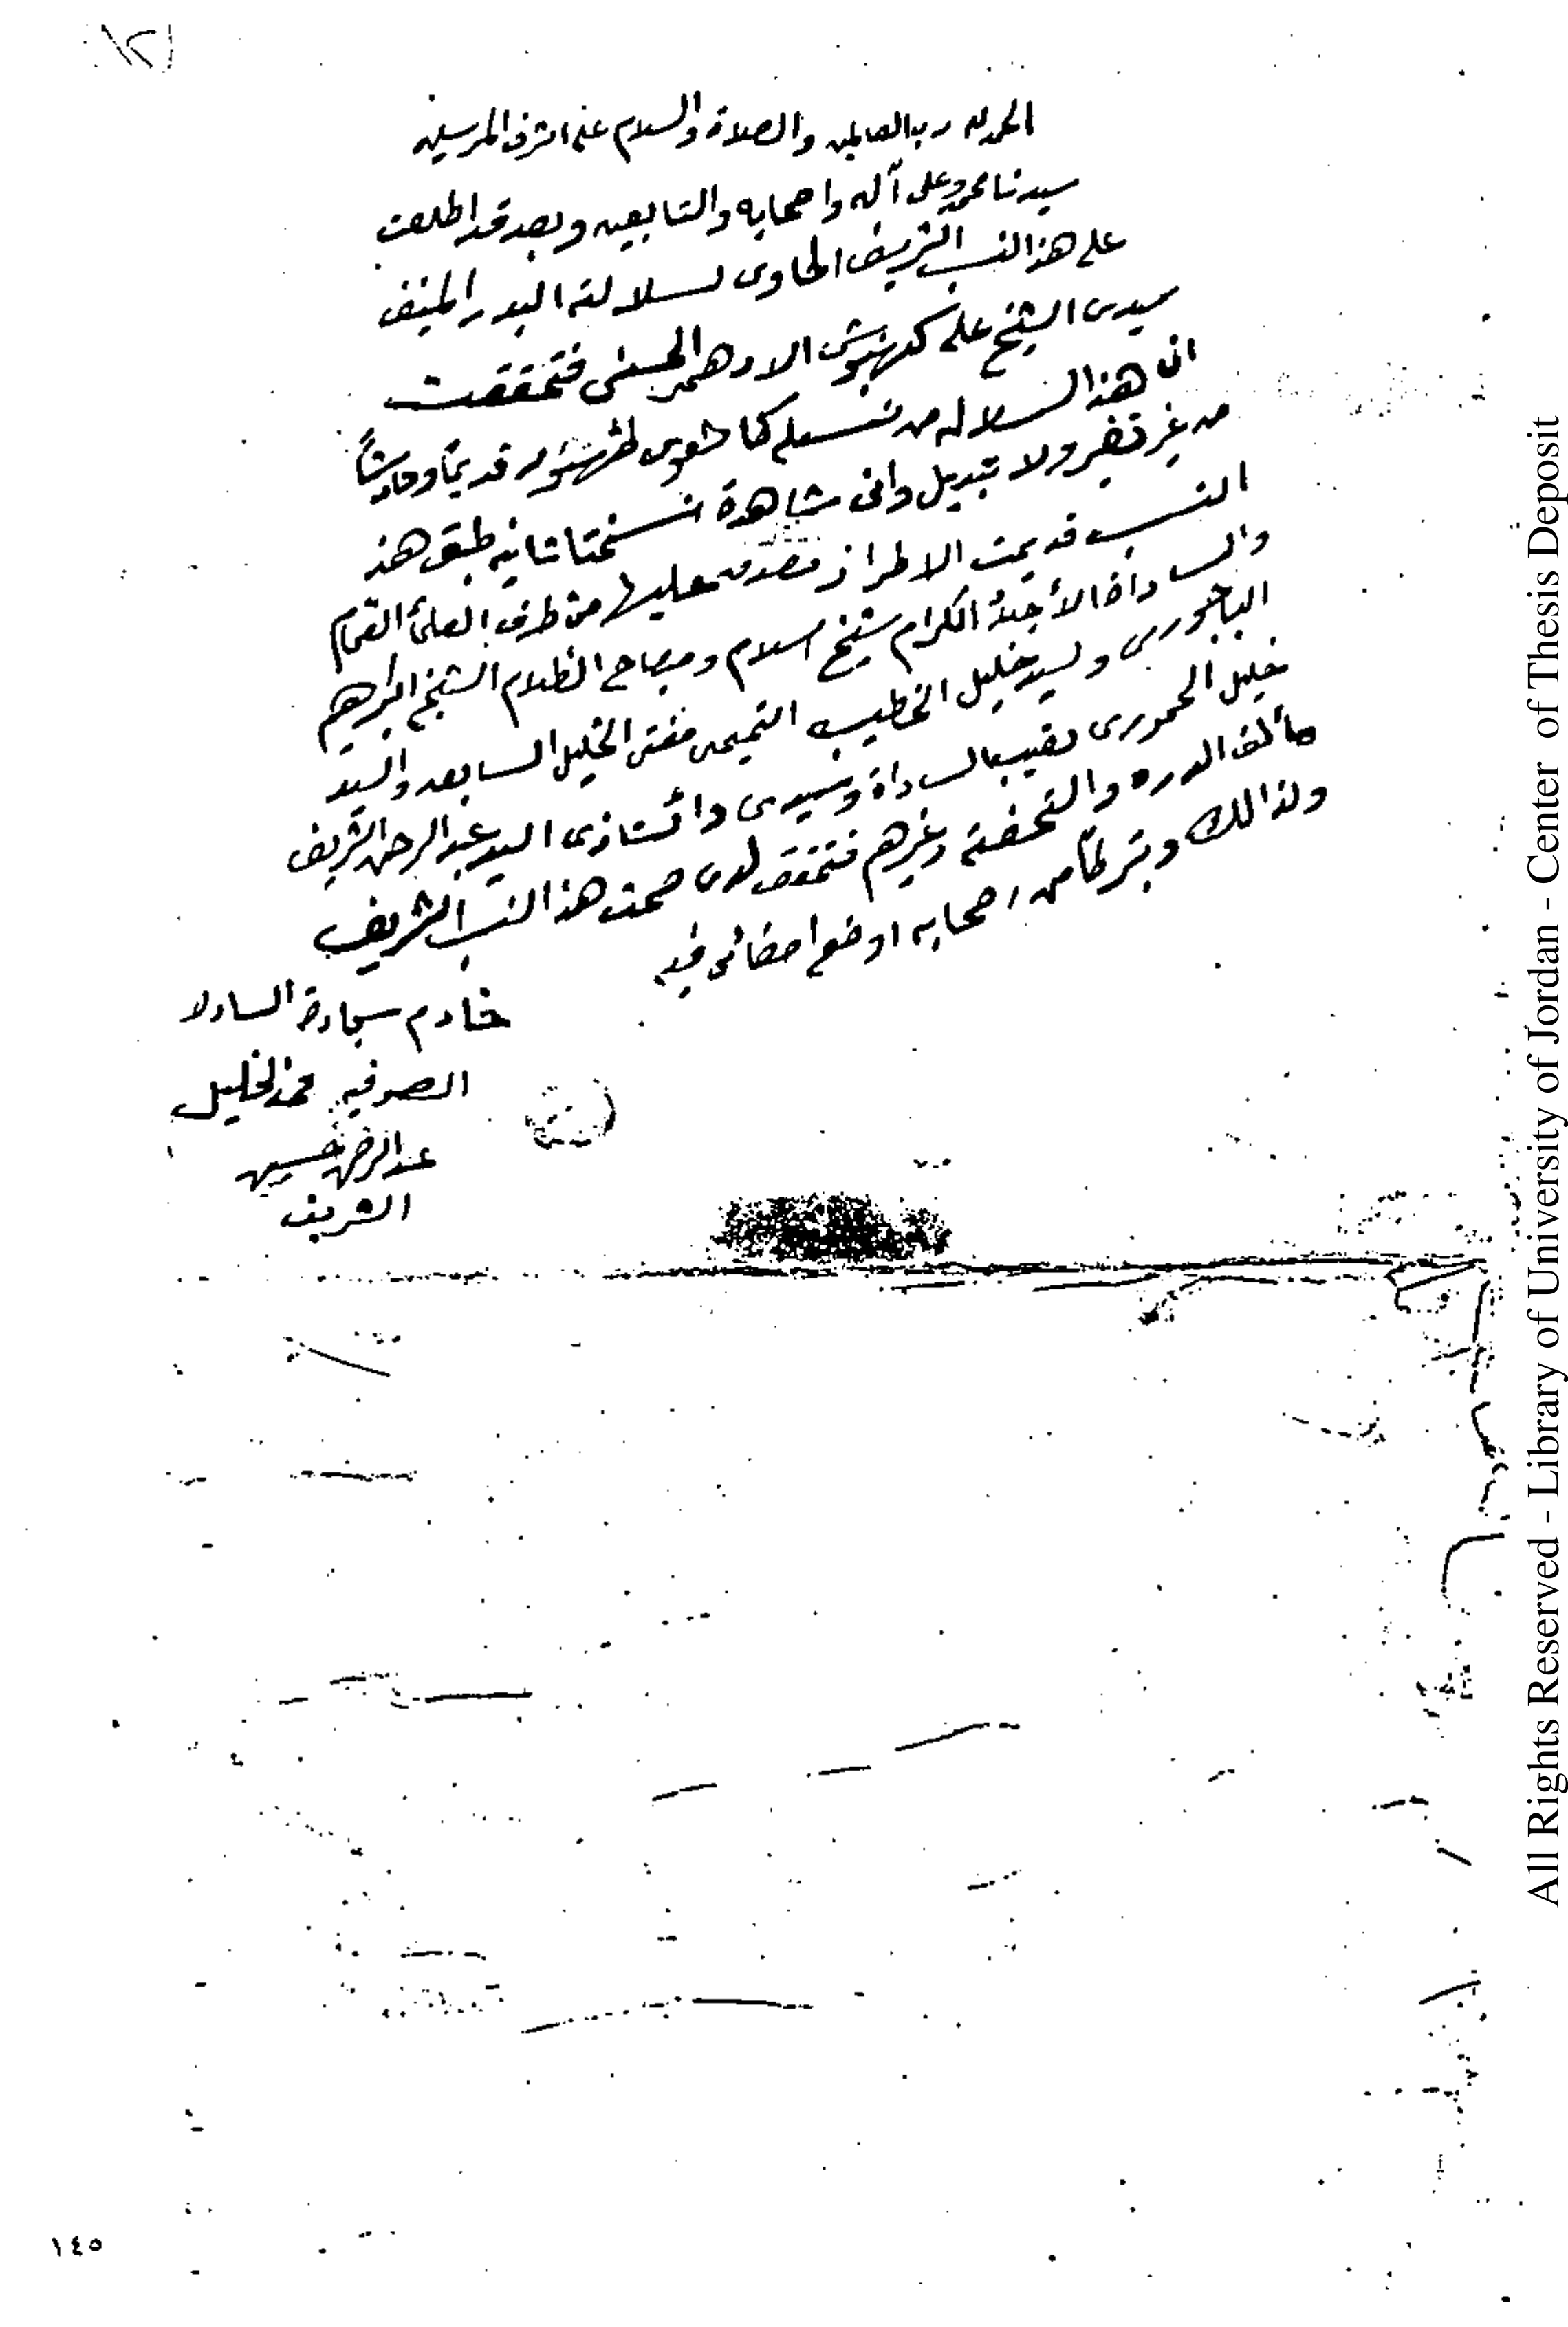 الحمدلله رب العالمين والصلاة والسلام على اشرف المرسلين
سيدنا محمد وعلى آله واصحابه والتابعين وبعد قد اطلعت
على هذا النسب الشريف الحاوى لسلالة البدر المنيف
سيدى الشيخ على كهنبوش الادهمى الحسنى فتحققت
ان هذا السلاله من نسله كما هوى مشهور قديماً وحديثاً
من غير تغير ولا تبديل وانى مشاهدة نسختا ثانيه طبق هذ
النسب قديمت الاطراز مصدق عليها من طرف العلمأ القحام
والساداة الأجلاء الكرام شيخ اسلام ومصباح الظلام الشيخ ابراهيم
الباجورى والسيد خليل الخطيب التميمى مفتى الخليل السابعد والسيد
خليل الحمورى نقيب الساداة وسيدى وأستاذى السيد عبد الرحمن الشريف
مألف الدره والتحفة وغيرهم فتحقق لدى صحت هذا النسب الشريف
ولذالك وتبركاً من اصحابه اوضع امضائى فيه
خادم سجادة السادة
الصوفيه محمد الخليل
عبد الرحمن حسين
الشريف
١٤٥
All Rights Reserved - Library of University of Jordan - Center of Thesis Deposit